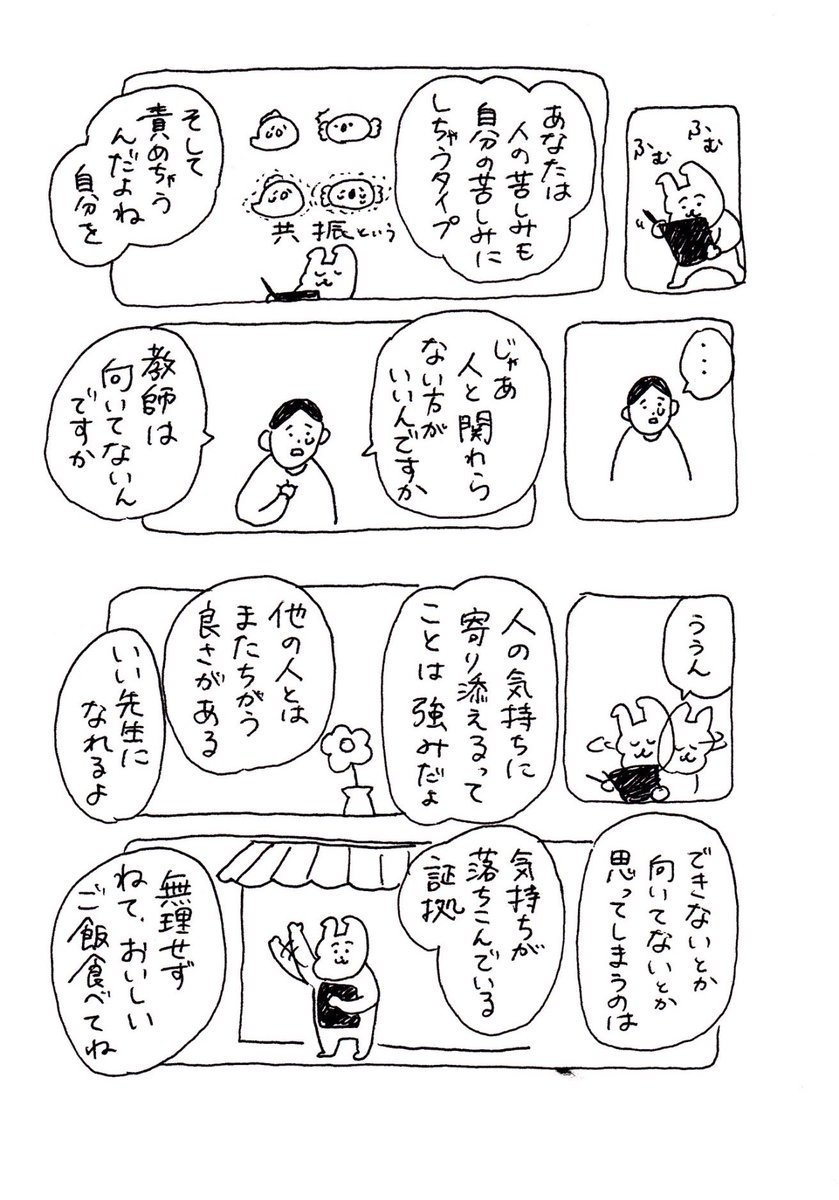 ふむ
ふむ
あなたは
人の苦しみも
自分の苦しみに
しちゃうタイプ
共振という
そして
責めちゃう
んだよね
自分を
・・・
じゃあ
人と関わら
ない方が
いいんですか
教師は
向いてないん
ですか
ううん
人の気持ちに
寄り添えるって
ことは強みだよ
他の人とは
またちがう
良さがある
いい先生に
なれるよ
できないとか
向いてないとか
思ってしまうのは
気持ちが
落ちこんでいる
証拠
無理せず
ねて、おいしい
ご飯食べてね